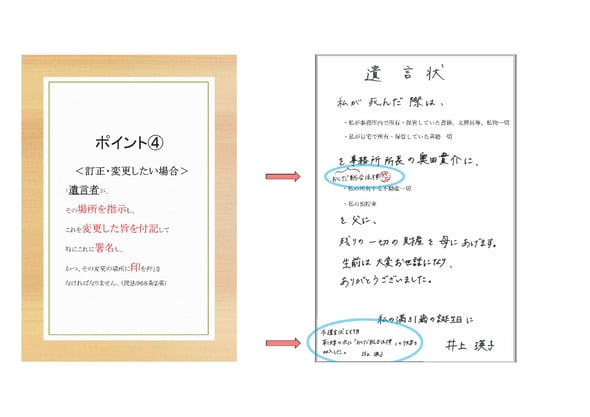 ポイント④
＜訂正・変更したい場合＞
遺言者が、
その場所を指示し、
これを変更した旨を付記して
特にこれに署名し、
かつ、その変更の場所に印を押さ
なければなりません。(民法968条2項)
遺言状
私が死んだ際は、
・私が事務所内で所有・保管していた書籍、文房具等、私物一切
・私が自宅で所有・保管していた書籍一切
を事務所所長の奥田貴介に、
おくだ総合法律
・私の所有する不動産一切
・私の預貯金
を父に、
残りの一切の財産を母にあげます。
生前は大変お世話になり、
ありがとうございました。
私の満31歳の誕生日に
井上瑛子
の次に「おくだ総合法律」の
加入した。 井上瑛子